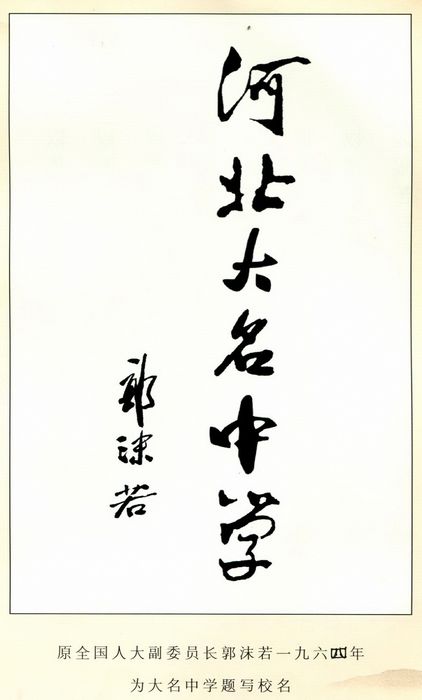 河北大名中学
郭沫若
原全国人大副委员长郭沫若一九六四年
为大名中学题写校名